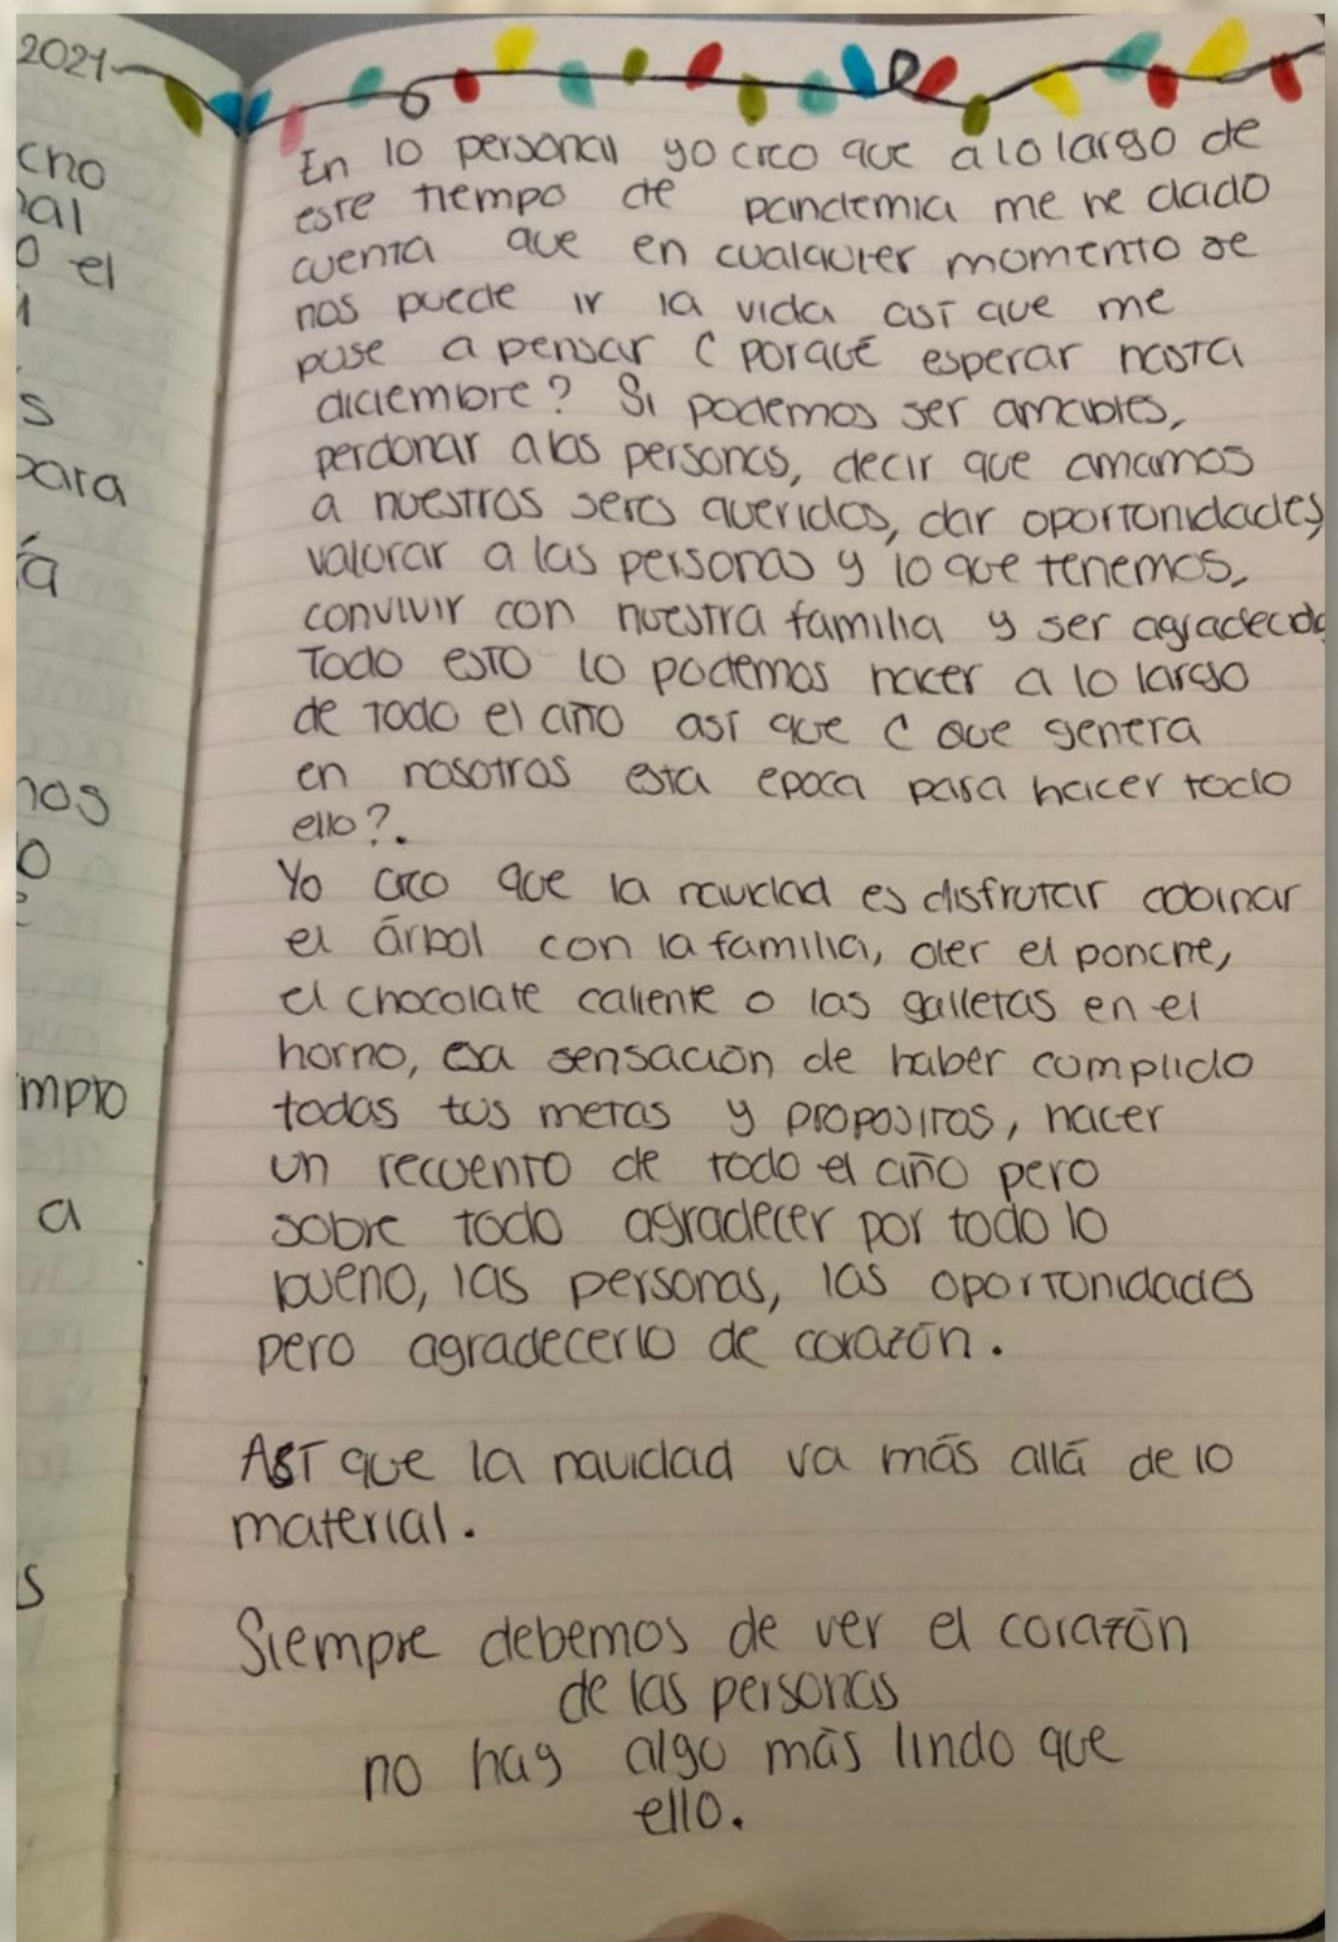 2021
cho
nal
o el
s
para
ía
nos
o
mpto
a
s
En lo personal yo creo que a lo largo de
este tiempo de pandemia me he dado
cuenta que en cualquier momento se
nos puede ir la vida así que me
puse a pensar ¿porqué esperar hasta
diciembre? Si podemos ser amables,
perdonar a las personas, decir que amamos
a nuestros seres queridos, dar oportunidades,
valorar a las personas y lo que tenemos,
convivir con nuestra familia y ser agradecido
Todo esto lo podemos hacer a lo largo
de todo el año así que ¿que genera
en nosotros esta epoca para hacer todo
ello?.
Yo creo que la navidad es disfrutar
el árbol con la familia, oler el ponche,
el chocolate caliente o las galletas en el
horno, esa sensación de haber cumplido
todas tus metas y propositos, hacer
un recuento de todo el año pero
sobre todo agradecer por todo lo
bueno, las personas, las oportunidades
pero agradecerlo de corazón.
Así que la navidad va más allá de lo
material.
Siempre debemos de ver el corazón
de las personas
no hay algo más lindo que
ello.